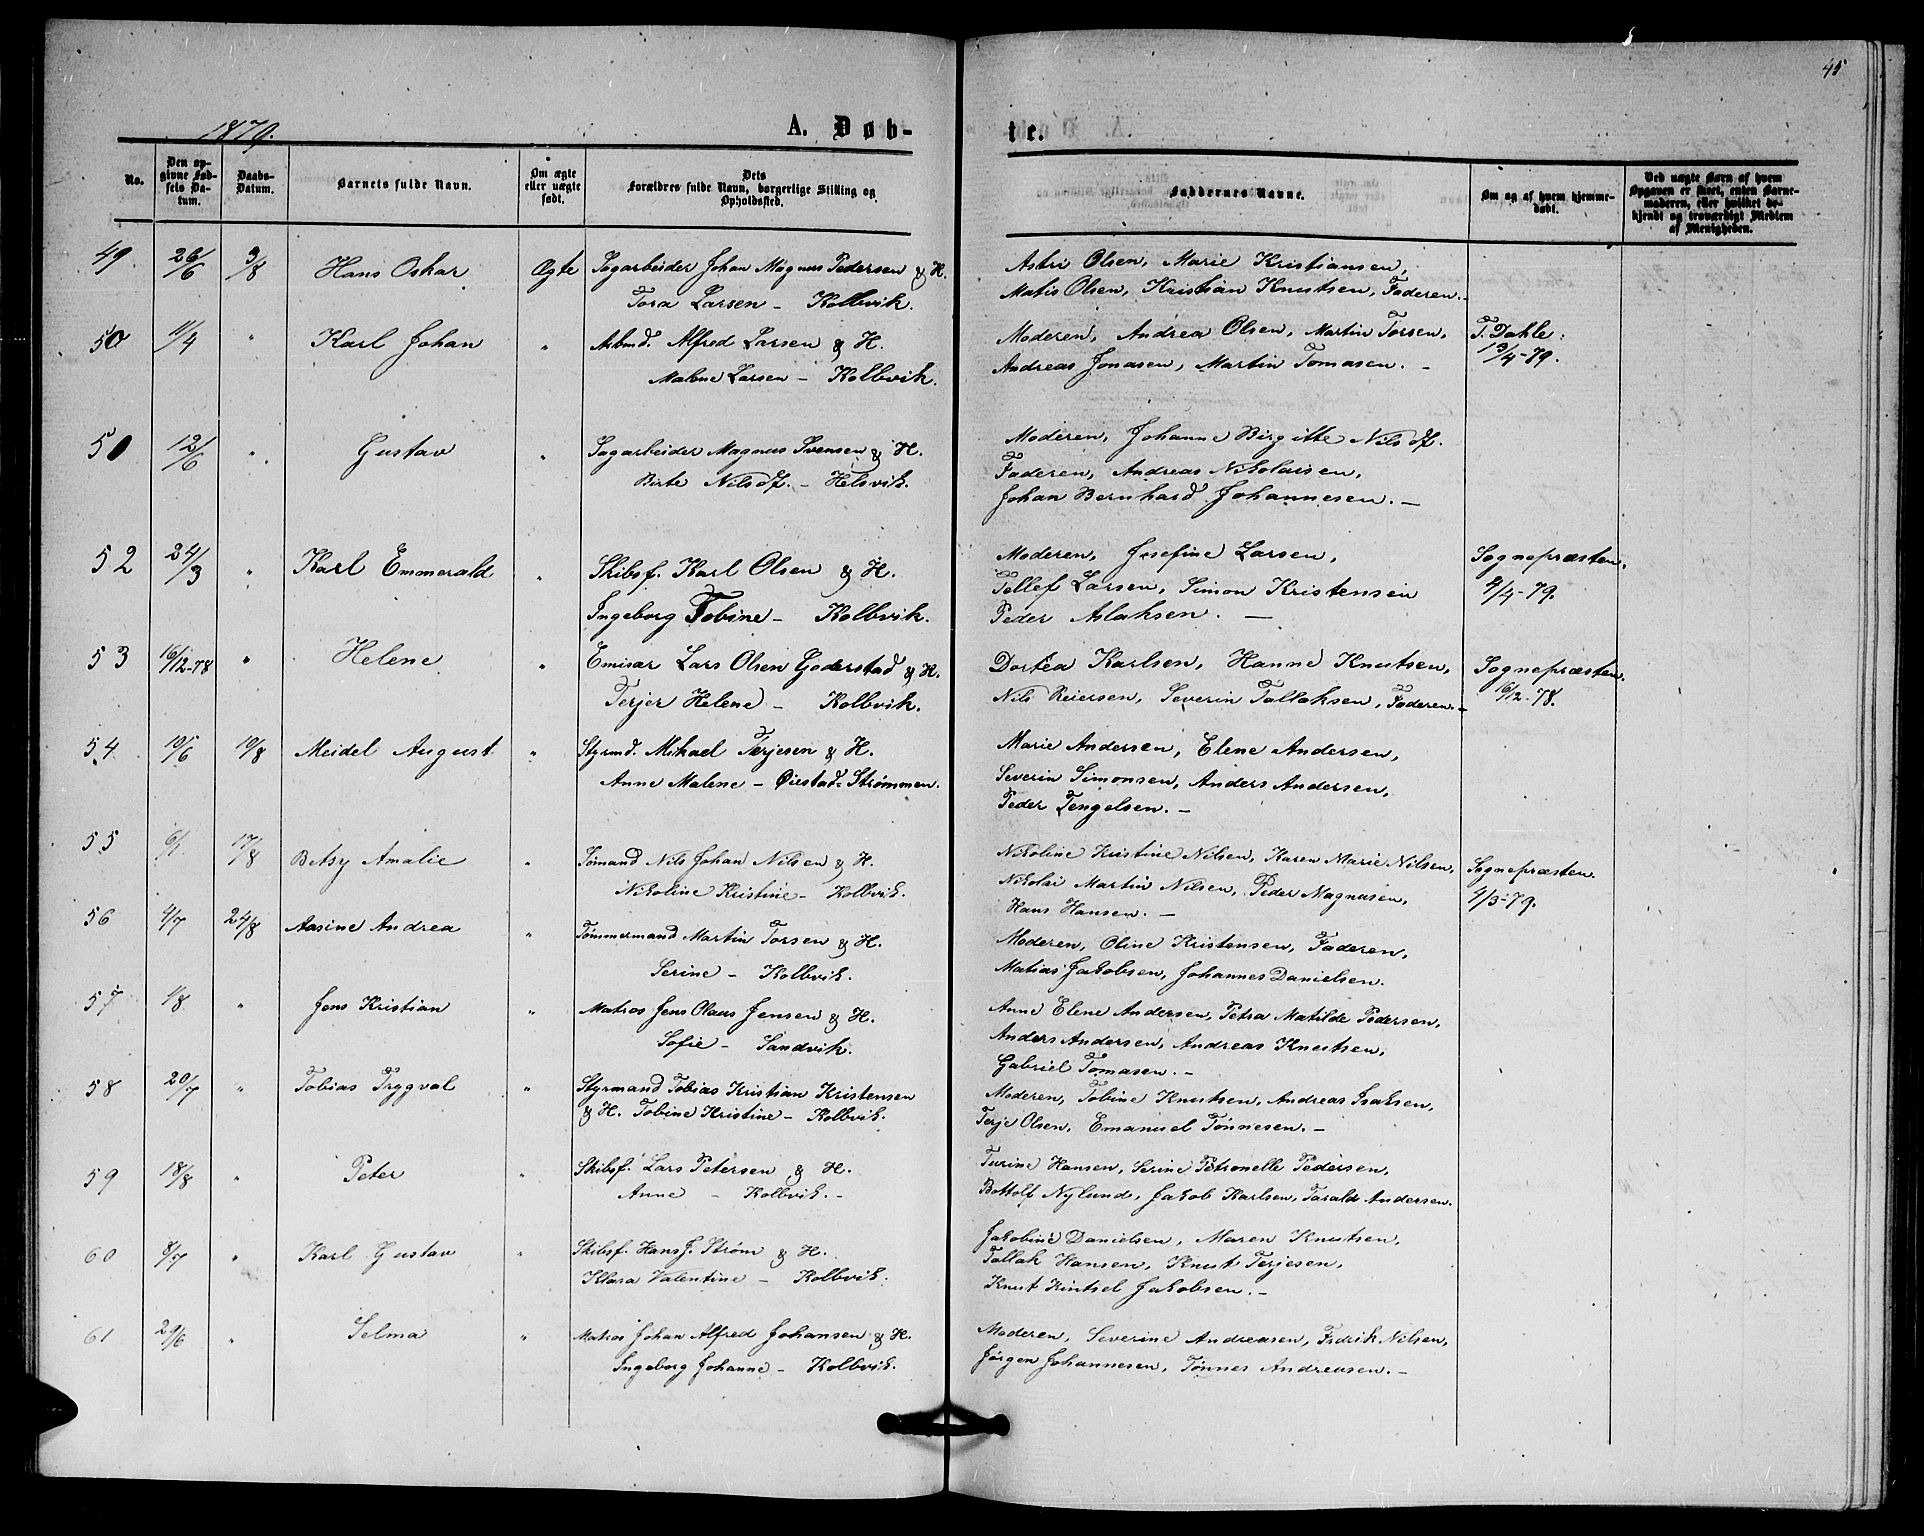 45
1879.
A. Døb-
te.
No.
Den op-
givne Fød-
sels Da-
tum.
Daabs-
Datum.
Barnets fulde Navn.
Om ægte
eller uægte
født.
Dets
Forældres fulde Navn, borgerlige Stilling og
Opholdssted.
Faddernes Navne.
Om og af hvem hjemme-
døbt.
Ved uægte Børn af hvem
Opgaven er skeet, enten Barne-
moderen, eller hvilket be-
kjendt og troværdigt Medlem
af Menigheden.
49. 26/6 3/8 Hans Oskar Ægte Sagarbeider Johan Magnus Pedersen & H.
Tora Larsen - Kolbvik.
Astri Olsen, Marie Kristiansen,
Matis Olsen, Kristian Knutsen, Faderen. -
50 11/4 " Karl Johan " Arbmd. Alfred Larsen & H.
Malene Larsen - Kolbvik.
Moderen, Andrea Olsen, Martin Torsen,
Andreas Jonasen, Martin Tomasen. -
T. Dahle:
13/4-79.
50 12/6 " Gustav " Sagarbeider Magnus Svensen & H.
Birte Nilsdf. - Helsvik.
Moderen, Johanne Birgitte Nilsdf.
Faderen, Andreas Nikolaisen,
Johan Bernhard Johannesen. -
52 24/3 " Karl Emmerald " Skibsf. Karl Olsen & H.
Ingeborg Tobine - Kolbvik.
Moderen, Josefine Larsen,
Tellef Larsen, Simon Kristensen
Peder Aslaksen. -
Sognepræsten.
4/4-79.
53 16/12-78 " Helene " Emisær Lars Olsen Goderstad & H.
Terjer Helene - Kolbvik.
Dortea Karlsen, Hanne Knutsen,
Nils Reiersen, Severin Tallaksen, Faderen. -
Sognepræsten.
16/12-78.
54. 19/6 19/8 Meidel August " Styrmd. Mikael Terjesen & H.
Anne Malene - Øiestad. Strømmen.
Marie Andersen, Elene Andersen,
Severin Simonsen, Anders Andersen,
Peder Tengelsen. -
55 6/1 17/8 Betsy Amalie " Sømand Nils Johan Nilsen & H.
Nikoline Kristine - Kolbvik.
Nikoline Kristine Nilsen, Karen Marie Nilsen,
Nikolai Martin Nilsen, Peder Magnusen,
Hans Hansen. -
Sognepræsten.
4/3-79.
56 4/7 24/8 Aasine Andrea " Tømmermand Martin Torsen & H.
Serine - Kolbvik.
Moderen, Oline Kristensen, Faderen,
Matias Jakobsen, Johannes Danielsen.
57 1/8 " Jens Kristian " Matros Jens Olaus Jensen & H.
Sofie - Sandvik.
Anne Elene Andersen, Petra Matilde Pedersen,
Anders Andersen, Andreas Knutsen,
Gabriel Tomasen. -
58 20/7 " Tobias Trygval " Styrmand Tobias Kristian Kristensen
& H. Tobine Kristine - Kolbvik.
Moderen, Tobine Knutsen, Andreas Isaksen,
Terje Olsen, Emanuel Tønnesen. -
59 18/8 " Peter " Skibsf. Lars Petersen & H.
Anne - Kolbvik. -
Turine Hansen, Serine Petronelle Pedersen,
Bottolf Nylund, Jakob Karlsen, Tarald Andersen.
60 8/7 " Karl Gustav " Skibsf. Hans J. Strøm & H.
Klara Valentine - Kolbvik.
Jakobine Danielsen, Maren Knutsen,
Tallak Hansen, Knut Terjesen,
Knut Kintsel Jakobsen. -
61 29/6 " Selma " Matros Johan Alfred Johansen & H.
Ingeborg Johanne - Kolbvik.
Moderen, Severine Andreasen, Fredrik Nilsen,
Jørgen Johannesen, Tønnes Andreasen. -